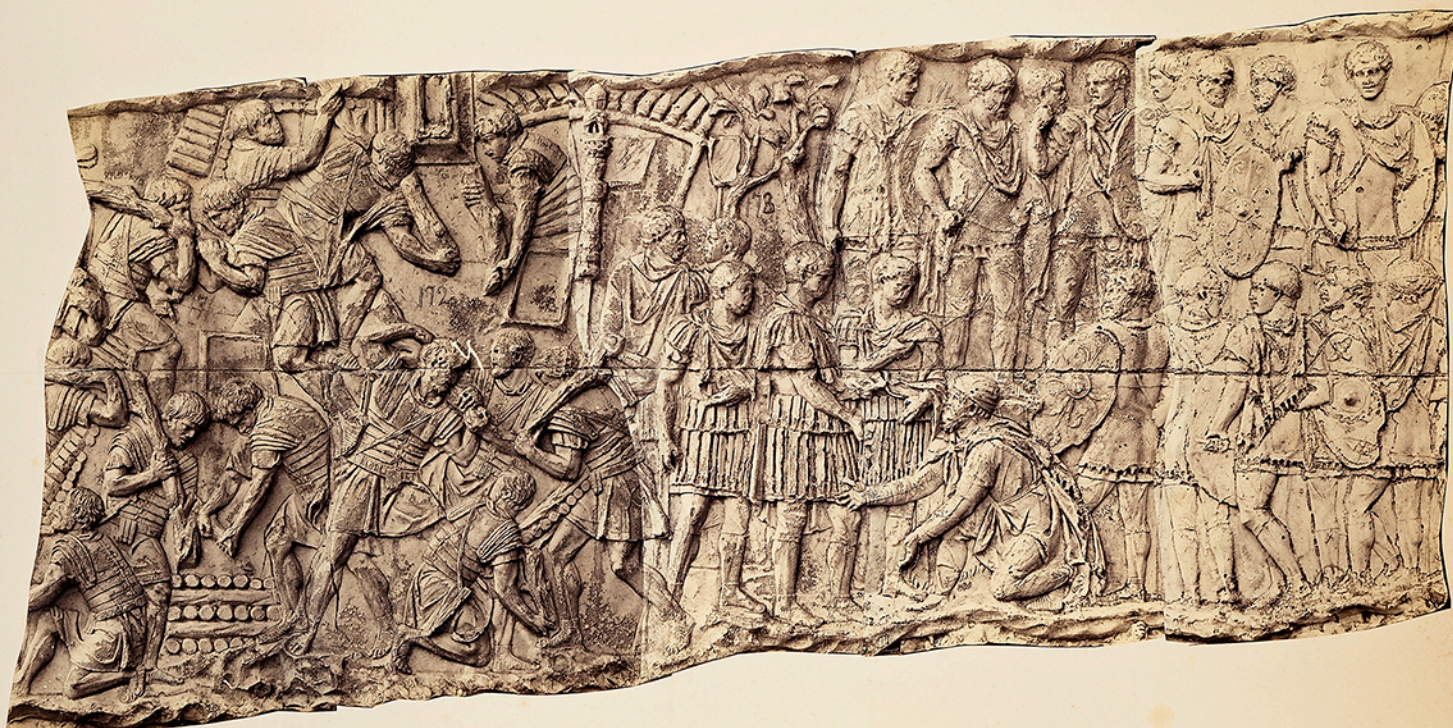 172
173